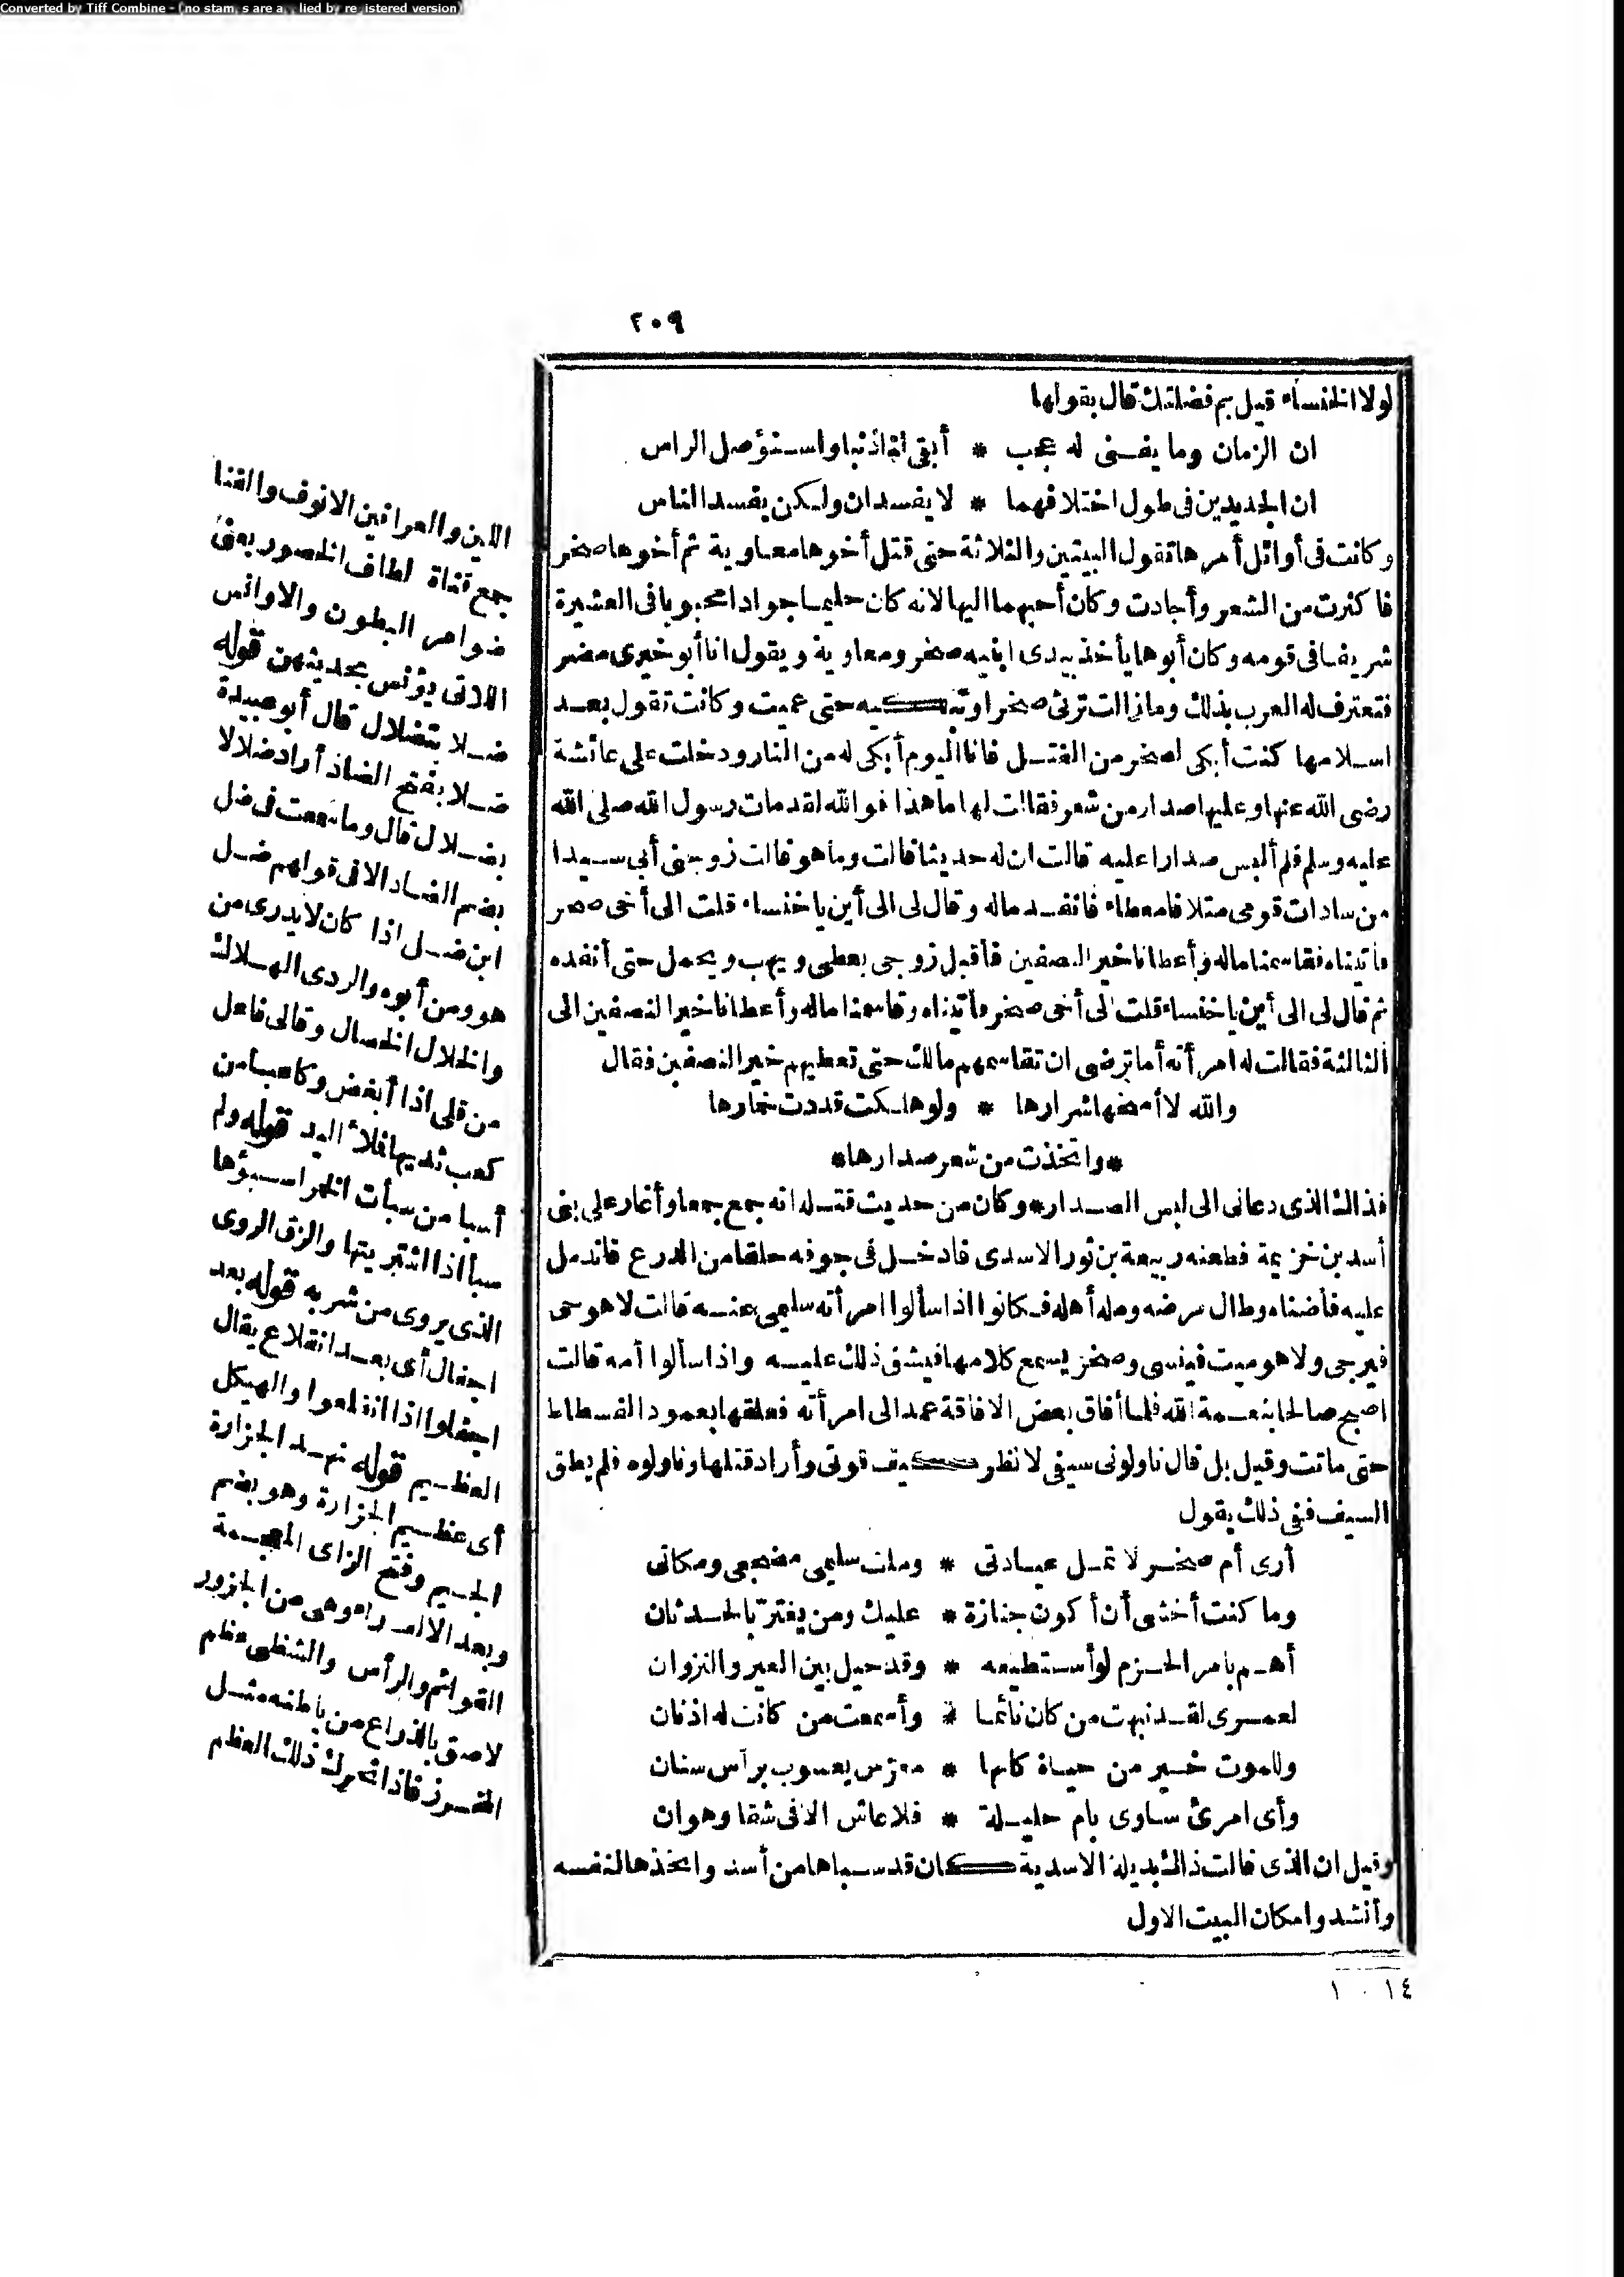 Converted by Tiff Combine - (no stamps are applied by registered version)
٢٠٩
لولا الخنساء قيل بم فضلتك قال بقولها
ان الزمان وما يفنى له عجب * أبقى لنا ذنبا واستؤصل الراس
ان الجديدين فى طول اختلافهما * لا يفسدان ولكن يفسد الناس
وكانت فى أوائل أمرها تقول البيتين والثلاثة حتى قتل أخوها معاوية ثم أخوها صخر
فاكثرت من الشعر وأجادت وكان أحبهما اليها لانه كان حليما جوادا محبوبا فى العشيرة
شريفا فى قومه وكان أبوها يأخذ بيدى ابنيه صخر ومعاوية ويقول انا أبو خيرى مضر
فتعترف له العرب بذلك وما زالت ترثى صخرا وتبكيه حتى عميت وكانت تقول بعد
اسلامها كنت أبكى لصخر من القتل فانا اليوم أبكى له من النار ودخلت على عائشة
رضى الله عنها وعليها صدار من شعر فقالت لها ما هذا فوالله لقد مات رسول الله صلى الله
عليه وسلم فلم ألبس صدارا عليه قالت ان له حديثا قالت وما هو قالت زوجنى أبى سيدا
من سادات قومى متلافا معطاء فانفد ماله وقال لى الى أين يا خنساء قلت الى أخى صخر
فأتيناه فقاسمنا ماله وأعطانا خير النصفين فأقبل زوجى يعطى ويهب ويحمل حتى أنفده
ثم قال لى الى أين يا خنساء قلت الى أخى صخر فأتيناه وقاسمنا ماله وأعطانا خير النصفين الى
الثالثة فقالت له امرأته أما ترضى ان تقاسمهم مالك حتى تعطيهم خير النصفين فقال
والله لا أمنحها شرارها * ولو هلكت قددت خمارها
*واتخذت من شعر صدارها*
فذلك الذى دعانى الى لبس الصدار*وكان من حديث قتله انه جمع جمعا وأغار على بنى
أسد بن خزيمة فطعنه ربيعة بن ثور الاسدى فادخل فى جوفه حلقا من الدرع فاندمل
عليه فأضناه وطال مرضه ومله أهله فكانوا اذا سألوا امرأته سليمى عنه قالت لا هو حى
فيرجى ولا هو ميت فينسى وصخر يسمع كلامها فيشق ذلك عليه واذا سألوا أمه قالت
اصبح صالحا بنعمة الله فلما أفاق بعض الافاقة عمد الى امرأته فعلقها بعمود الفسطاط
حتى ماتت وقيل بل قال ناولونى سيفى لانظر كيف قوتى وأراد قتلها وناولوه فلم يطق
السيف ففى ذلك يقول
أرى أم صخر لا تمل عيادتى * وملت سليمى مضجعى ومكانى
وما كنت أخشى أن أكون جنازة * عليك ومن يغتر بالحدثان
أهم بامر الحزم لو أستطيعه * وقد حيل بين العير والنزوان
لعمرى لقد نبهت من كان نائما * وأسمعت من كانت له اذنان
وللموت خير من حياة كانها * معرس يعسوب برأس سنان
وأى امرئ ساوى بام حليلة * فلا عاش الا فى شقا وهوان
وقيل ان الذى قالت ذلك بديلة الاسدية كان قد سباها من أسد واتخذها لنفسه
وأنشدوا مكان البيت الاول
١٤ . ١
اللين والعرانين الانوف والقنا
جمع قناة لطاف الخصور يعنى
ضوامر البطون والاوانس
اللاتى يؤنس بحديثهن قوله
ضلا بتضلال قال أبو عبيدة
ضلا بفتح الضاد أراد ضلالا
بضلال قال وما سمعت فى ضل
بضم الضاد الا فى قولهم ضل
ابن ضل اذا كان لا يدرى من
هو ومن أبوه والردى الهلاك
والخلال الخصال وقالى فاعل
من قلى اذا أبغض وكاعبا من
كعب ثديها فلأ اليد قوله ولم
أسبا من سبأت الخمر اسبؤها
سبأ اذا اشتريتها والزق الروى
الذى يروى من شربه قوله بعد
اجفال أى بعد انقلاع يقال
اجفلوا اذا انقلعوا والهيكل
العظيم قوله نهد الجزارة
أى عظيم الجزارة وهو بضم
الجيم وفتح الزاى المعجمة
وبعد الالف راء وهى من الجزور
القوائم والرأس والشظى عظم
لاصق بالذراع من باطنه مثل
المخرز فاذا تحرك ذلك العظم